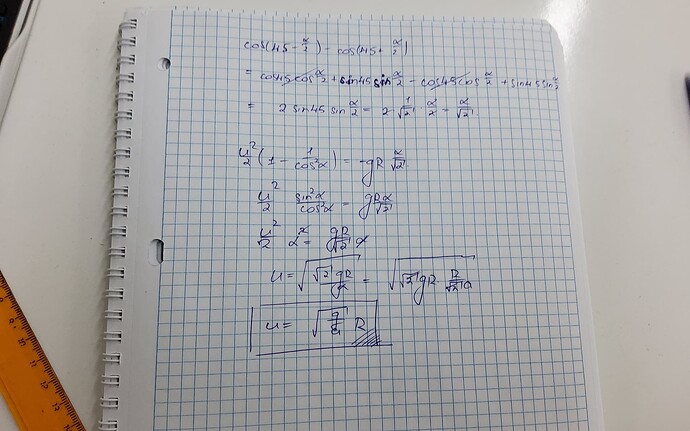 cos(45 - α/2) - cos(45 + α/2)
= cos45 cos α/2 + sin45 sin α/2 - cos45 cos α/2 + sin45 sin α/2
= 2 sin45 sin α/2 = 2 1/√2 · α/2 = α/√2
u²/2 (1 - 1/cos²α) = -gR α/√2
u²/2 sin²α/cos²α = gR α/√2
u²/2 α² = gR/√2 α
u = √(√2 gR/α) = √(√2 gR R/(√2 a))
u = √(g/a) R